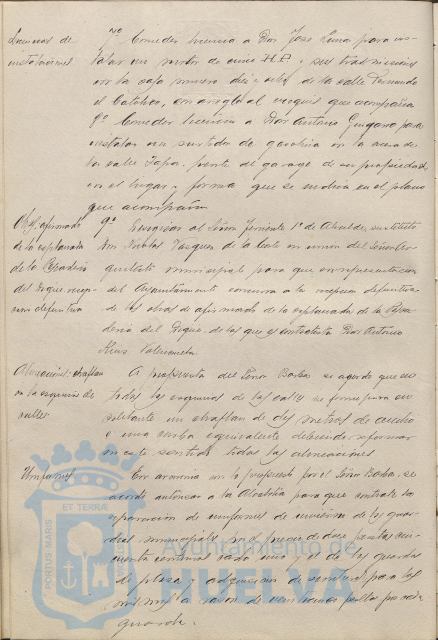 Licencias de
instalaciones
7º Conceder licencia a Don José Luna para ins-
talar un motor de cinco H.P. y sus trasmisiones
en la casa número diez y de la calle Fernando
el Católico, con arreglo al croquis que acompaña
8º Conceder licencia a Don Antonio para
instalar un surtidor de gasolina en la acera de
la calle Tapa, frente al garage de su propiedad
en el lugar y forma que se indica en el plano
que acompaña
Obras afirmado
de la explanada
de la Pescadería
del Dique
definitiva
9º Designar al Señor Teniente 1º de Alcalde, sustituto
Don Nicolás Vazquez de la Corte en union del Señor Ar-
quitecto municipal para que en representacion
del Ayuntamiento concurra a la recepcion definitiva
de las obras de afirmado de la explanada de la Pesca-
deria del Dique, de las que es contratista Don Antonio
Alineación: chaflan
en las esquinas de
calles
A propuesta del Señor Barba se acordó que en
todas las esquinas de las calles se forme para en
adelante un chaflan de dos metros de ancho
o una curba equivalente debiendo reformar
en este sentido todas las alineaciones
Uniformes
En armonia con lo propuesto por el Señor Barba, se
acordó autorizar a la Alcaldia para que contrate la
reparacion de uniformes de invierno de los guar-
dias municipales en el precio de doce pesetas cin-
cuenta centimos cada uno, y de los guardas
de plaza y adquisicion de para los
a razon de pesetas cada
guarda.
PORTUS MARIS
ET TERRÆ
Ayuntamiento de
HUELVA